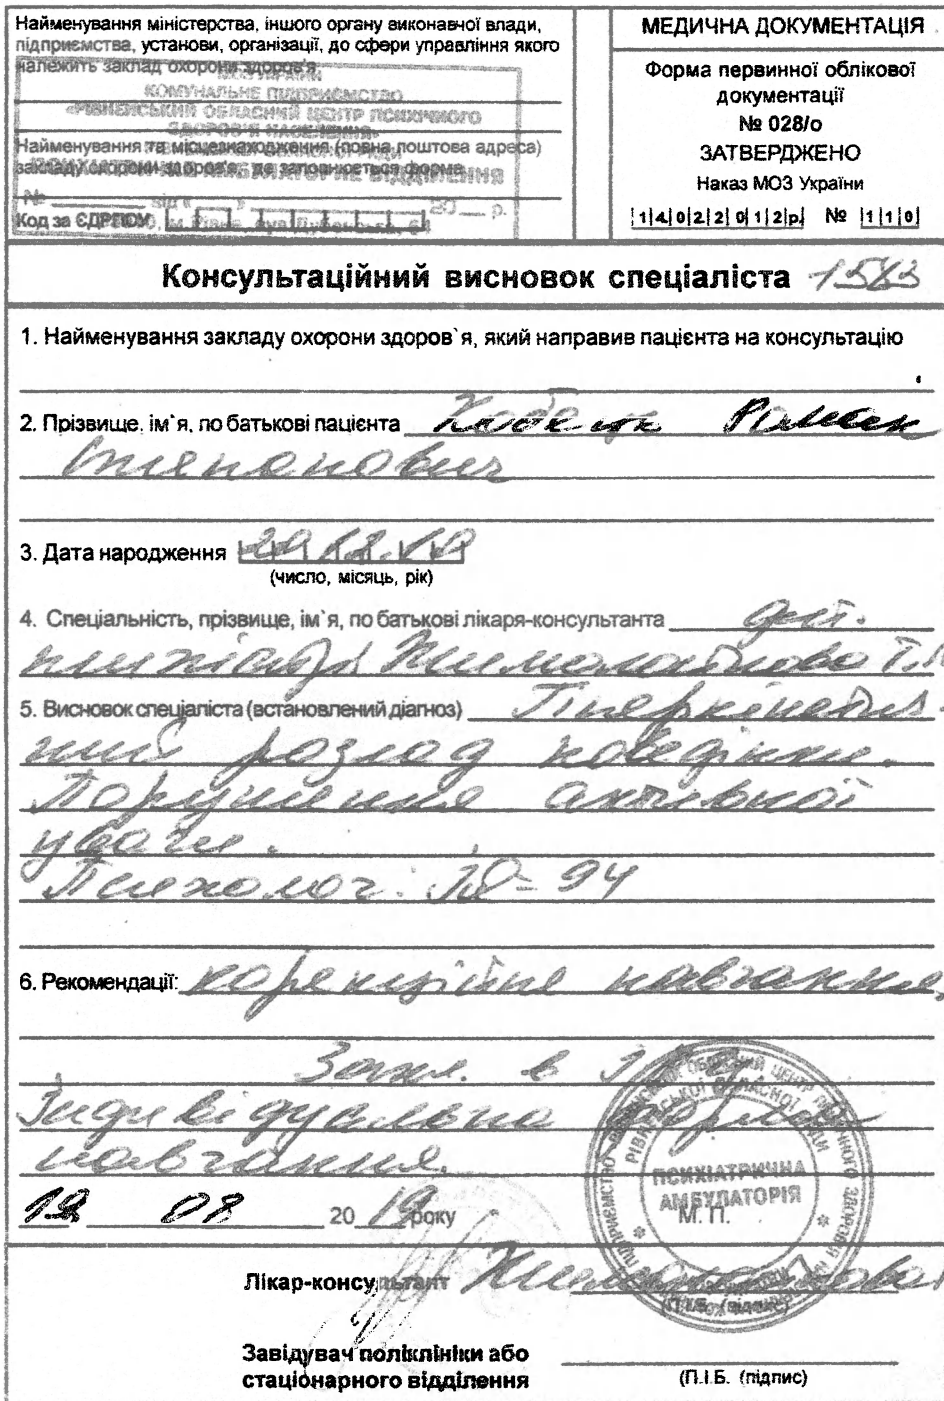 Найменування міністерства, іншого органу виконавчої влади,
підприємства, установи, організації, до сфери управління якого
належить заклад охорони здоров'я
КОМУНАЛЬНЕ ПІДПРИЄМСТВО
«РІВНЕНСЬКИЙ ОБЛАСНИЙ ЦЕНТР ПСИХІЧНОГО
ЗДОРОВ'Я НАСЕЛЕННЯ»
Найменування та місцезнаходження (повна поштова адреса)
закладу охорони здоров'я, де заповнюється форма
ВІДДІЛЕННЯ
№ від « » 20 р.
Код за ЄДРПОУ
МЕДИЧНА ДОКУМЕНТАЦІЯ
Форма первинної облікової
документації
№ 028/о
ЗАТВЕРДЖЕНО
Наказ МОЗ України
|1|4|0|2|2|0|1|2|р| № |1|1|0|
Консультаційний висновок спеціаліста
1. Найменування закладу охорони здоров`я, який направив пацієнта на консультацію
2. Прізвище, ім`я, по батькові пацієнта Роман
Степанович
3. Дата народження
(число, місяць, рік)
4. Спеціальність, прізвище, ім`я, по батькові лікаря-консультанта дит.
психіатр
5. Висновок спеціаліста (встановлений діагноз) Гіперкінетич-
ний розлад поведінки.
Порушення активної
уваги.
Психолог: IQ - 94
6. Рекомендації: корекційне навчання.
Індивідуальна форма
навчання.
20 19 року
ПСИХІАТРИЧНА
АМБУЛАТОРІЯ
М. П.
Лікар-консультант
(П.І.Б. (підпис)
Завідувач поліклініки або
стаціонарного відділення
(П.І.Б. (підпис)